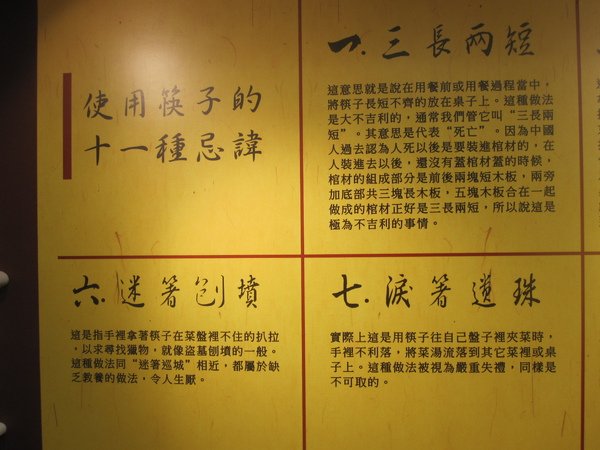 使用筷子的
十一種忌諱
一.三長兩短
這意思就是說在用餐前或用餐過程當中，
將筷子長短不齊的放在桌子上。這種做法
是大不吉利的，通常我們管它叫“三長兩
短”。其意思是代表“死亡”。因為中國
人過去認為人死以後是要裝進棺材的，在
人裝進去以後，還沒有蓋棺材蓋的時候，
棺材的組成部分是前後兩塊短木板，兩旁
加底部共三塊長木板，五塊木板合在一起
做成的棺材正好是三長兩短，所以說這是
極為不吉利的事情。
六.迷箸刨墳
這是指手裡拿著筷子在菜盤裡不住的扒拉
，以求尋找獵物，就像盜墓刨墳的一般。
這種做法同“迷箸巡城”相近，都屬於缺
乏教養的做法，令人生厭。
七.淚箸遺珠
實際上這是用筷子往自己盤子裡夾菜時，
手裡不利落，將菜湯流落到其它菜裡或桌
子上。這種做法被視為嚴重失禮，同樣是
不可取的。